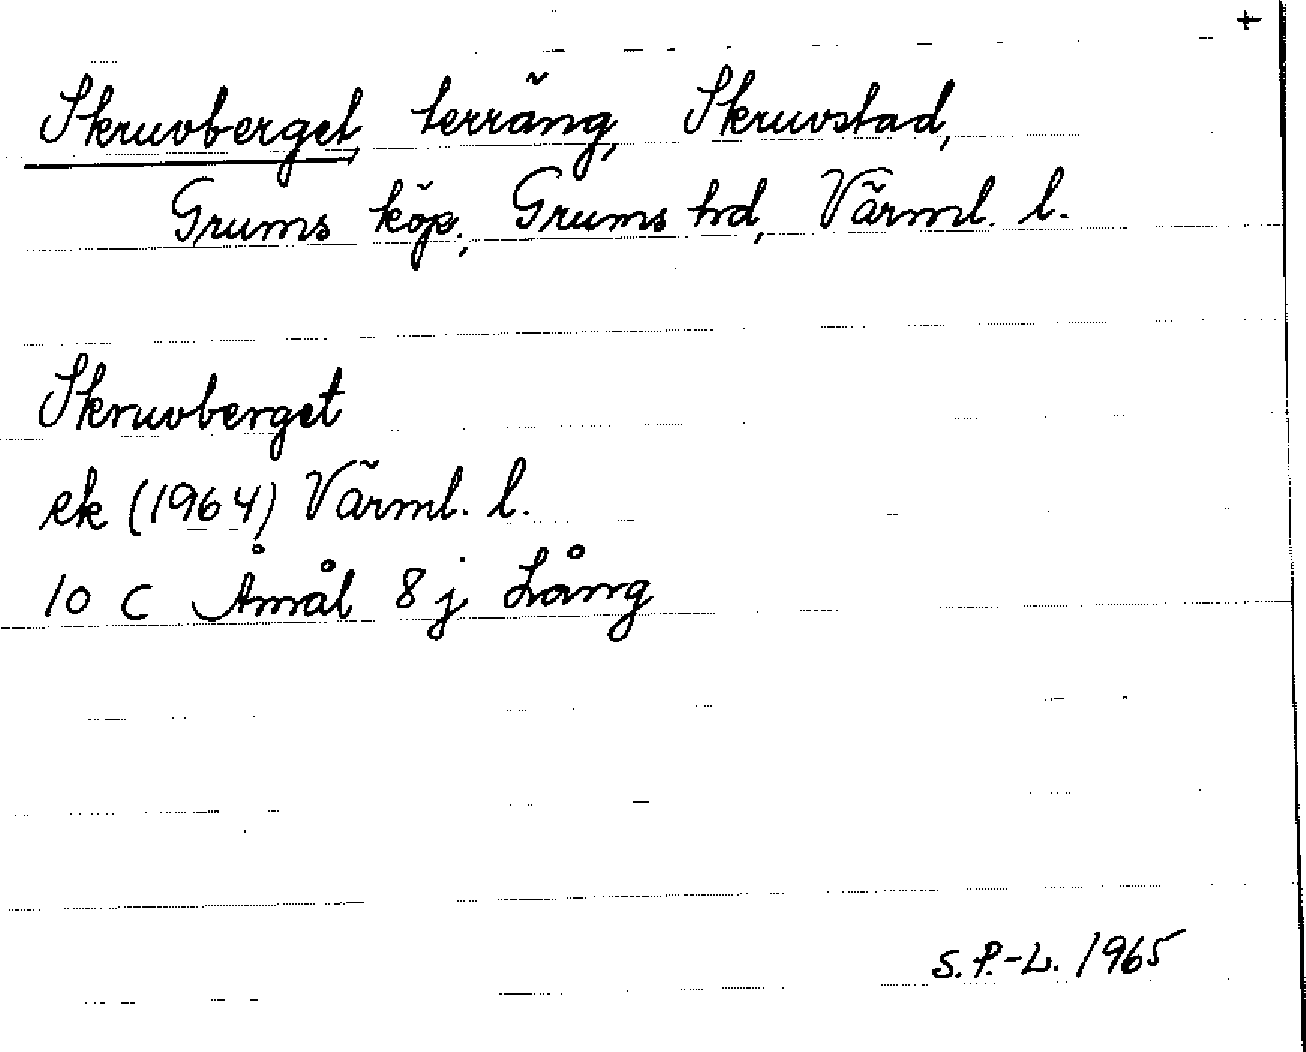 +
Skruvberget, terräng, Skruvstad,
Grums köp., Grums hd, Värml. l.
Skruvberget
ek (1964) Värml. l.
10 C Åmål 8 j Lång
S.P.-L. 1965